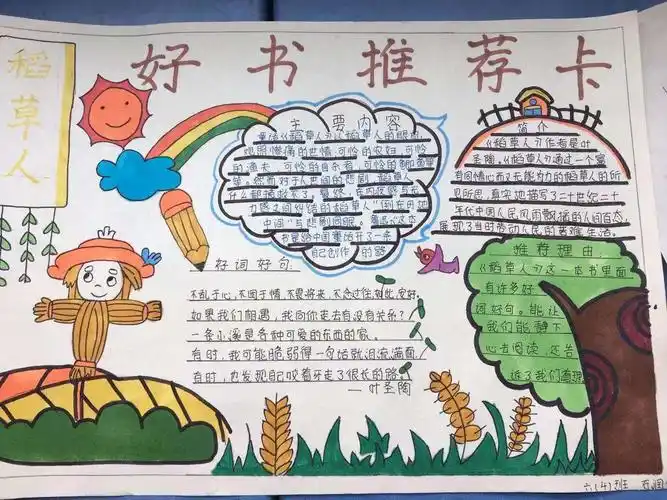 好书推荐卡
稻草人
主要内容
童话《稻草人》以稻草人的眼光
观照惨痛的世情：可怜的农妇，可怜
的渔夫，可怜的自杀者，可怜的鲫鱼
等。然而对于人世间的悲剧，稻草人
什么都拯救不了。最终，在内疚
中间"与悲剧同眠。鲁迅说这本
书是给中国童话开了一条
自己创作的路
简介
《稻草人》作者是叶
圣陶。《稻草人》通过一个富
有同情心而又无能为力的稻草人的所
见所思，真实地描写了二十世纪二十
年代中国人民风雨飘摇的人间百态，
展现了当时劳动人民的苦难生活。
推荐理由：
《稻草人》这一本书里面
有许多好
词好句。能让
我们能静下
心去阅读，还告
诉了我们道理
好词好句：
不乱于心，不困于情，不畏将来，不念过往，如此，安好。
如果我们相遇，我向你走去有没有关系？
一条小溪是各种可爱的东西的家。
有时，我可能脆弱得一句话就泪流满面，
有时，也发现自己咬着牙走了很长的路。
—叶圣陶
六(4)班